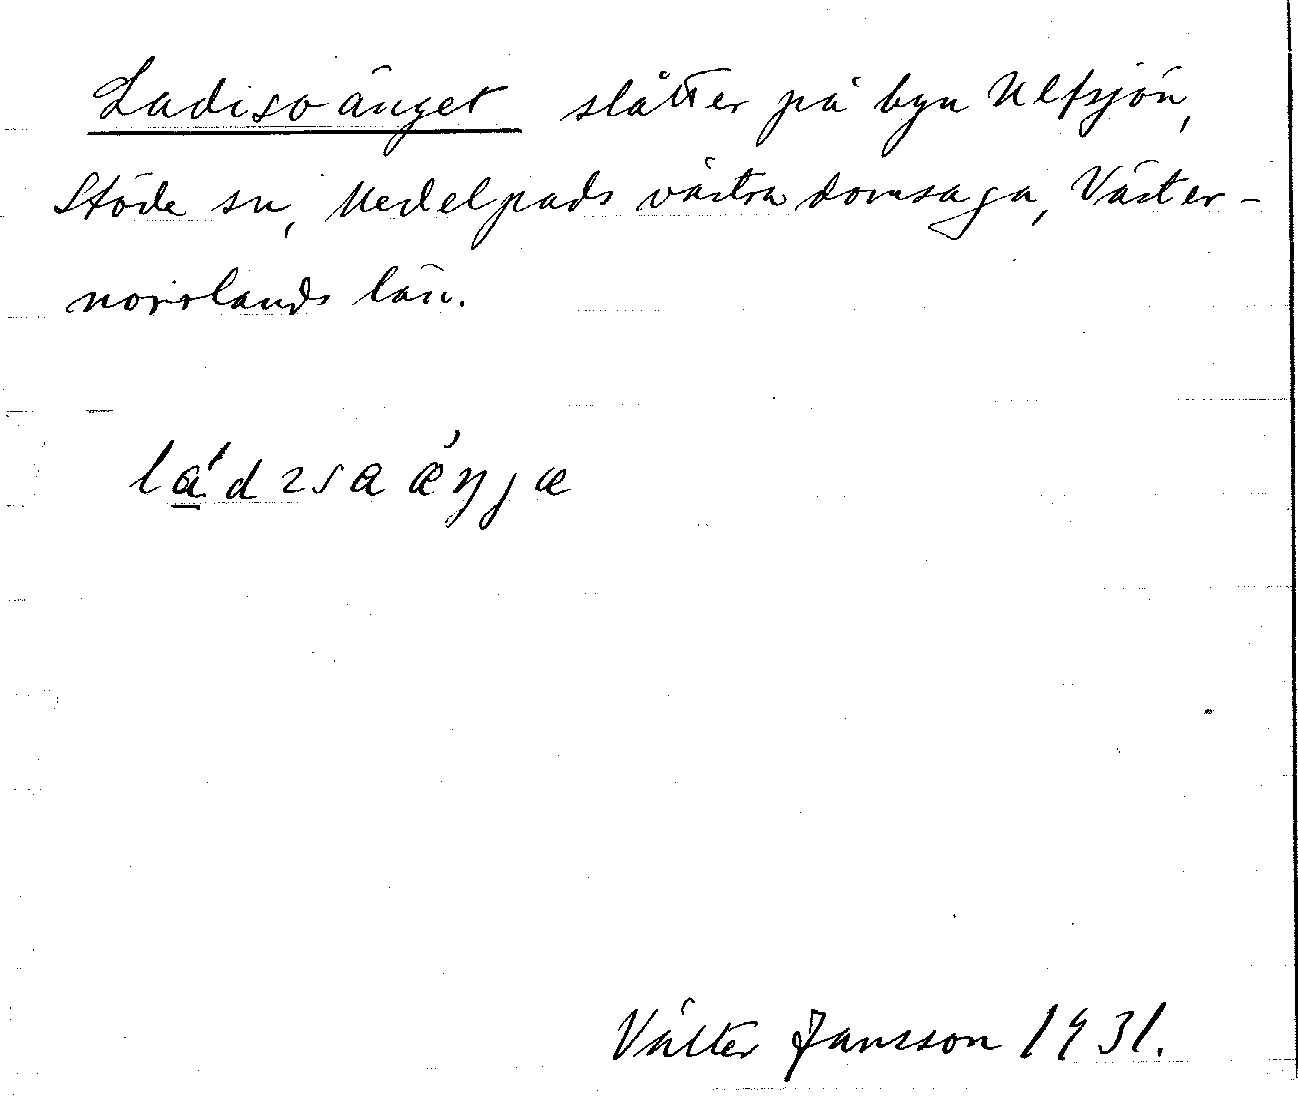 Ladisoänget slåtter på byn Ulfsjön,
Stöde sn, Medelpads västra domsaga, Väster-
norrlands län.
Valter Jansson 1931.